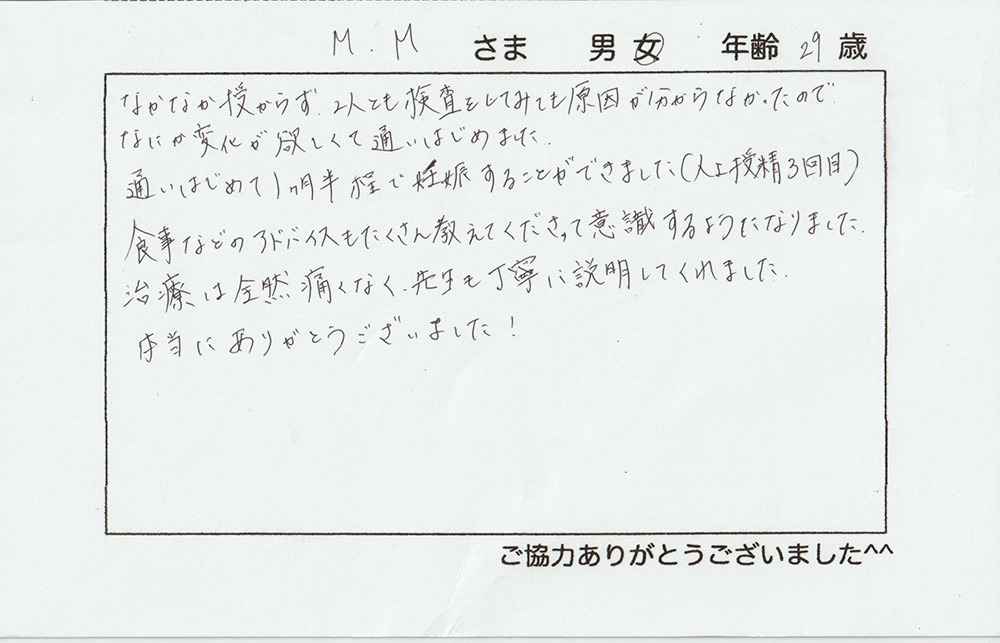 M.M さま 男 女 年齢 29 歳
なかなか授からず、2人とも検査をしてみても原因が分からなかったので
なにか変化が欲しくて通いはじめました。
通いはじめて1ヶ月半程で妊娠することができました(人工授精3回目)
食事などのアドバイスもたくさん教えてくださって意識するようになりました。
治療は全然痛くなく、先生も丁寧に説明してくれました。
本当にありがとうございました!
ご協力ありがとうございました^^